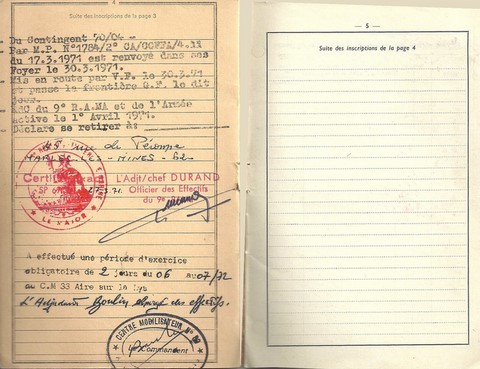 4
Suite des inscriptions de la page 3
Du Contingent 70/04 -
Par M.P. N°1784/2° CA/CCFFA/4.1
du 17.3.1971 est renvoyé dans ses
Foyer le 30.3.1971.
Mis en route par V.F. le 30.3.71
et passe la frontière G.F. le dit
jour.
RDC du 9° R.A.MA et de l'Armée
active le 1° Avril 1971.
Déclare se retirer à:
45 rue de Péronne
MARLES-LES-MINES - 62 -
Certifié exact
L'Adjt/chef DURAND
SP
71.
Officier des Effectifs
du 9e
LE MAJOR
A effectué une période d'exercice
obligatoire de 2 jours du 06 au 07/72
au C.M 33 Aire sur la Lys
L'Adjudant Boulin chargé des effectifs.
CENTRE MOBILISATEUR N°
Commandant
- 5 -
Suite des inscriptions de la page 4